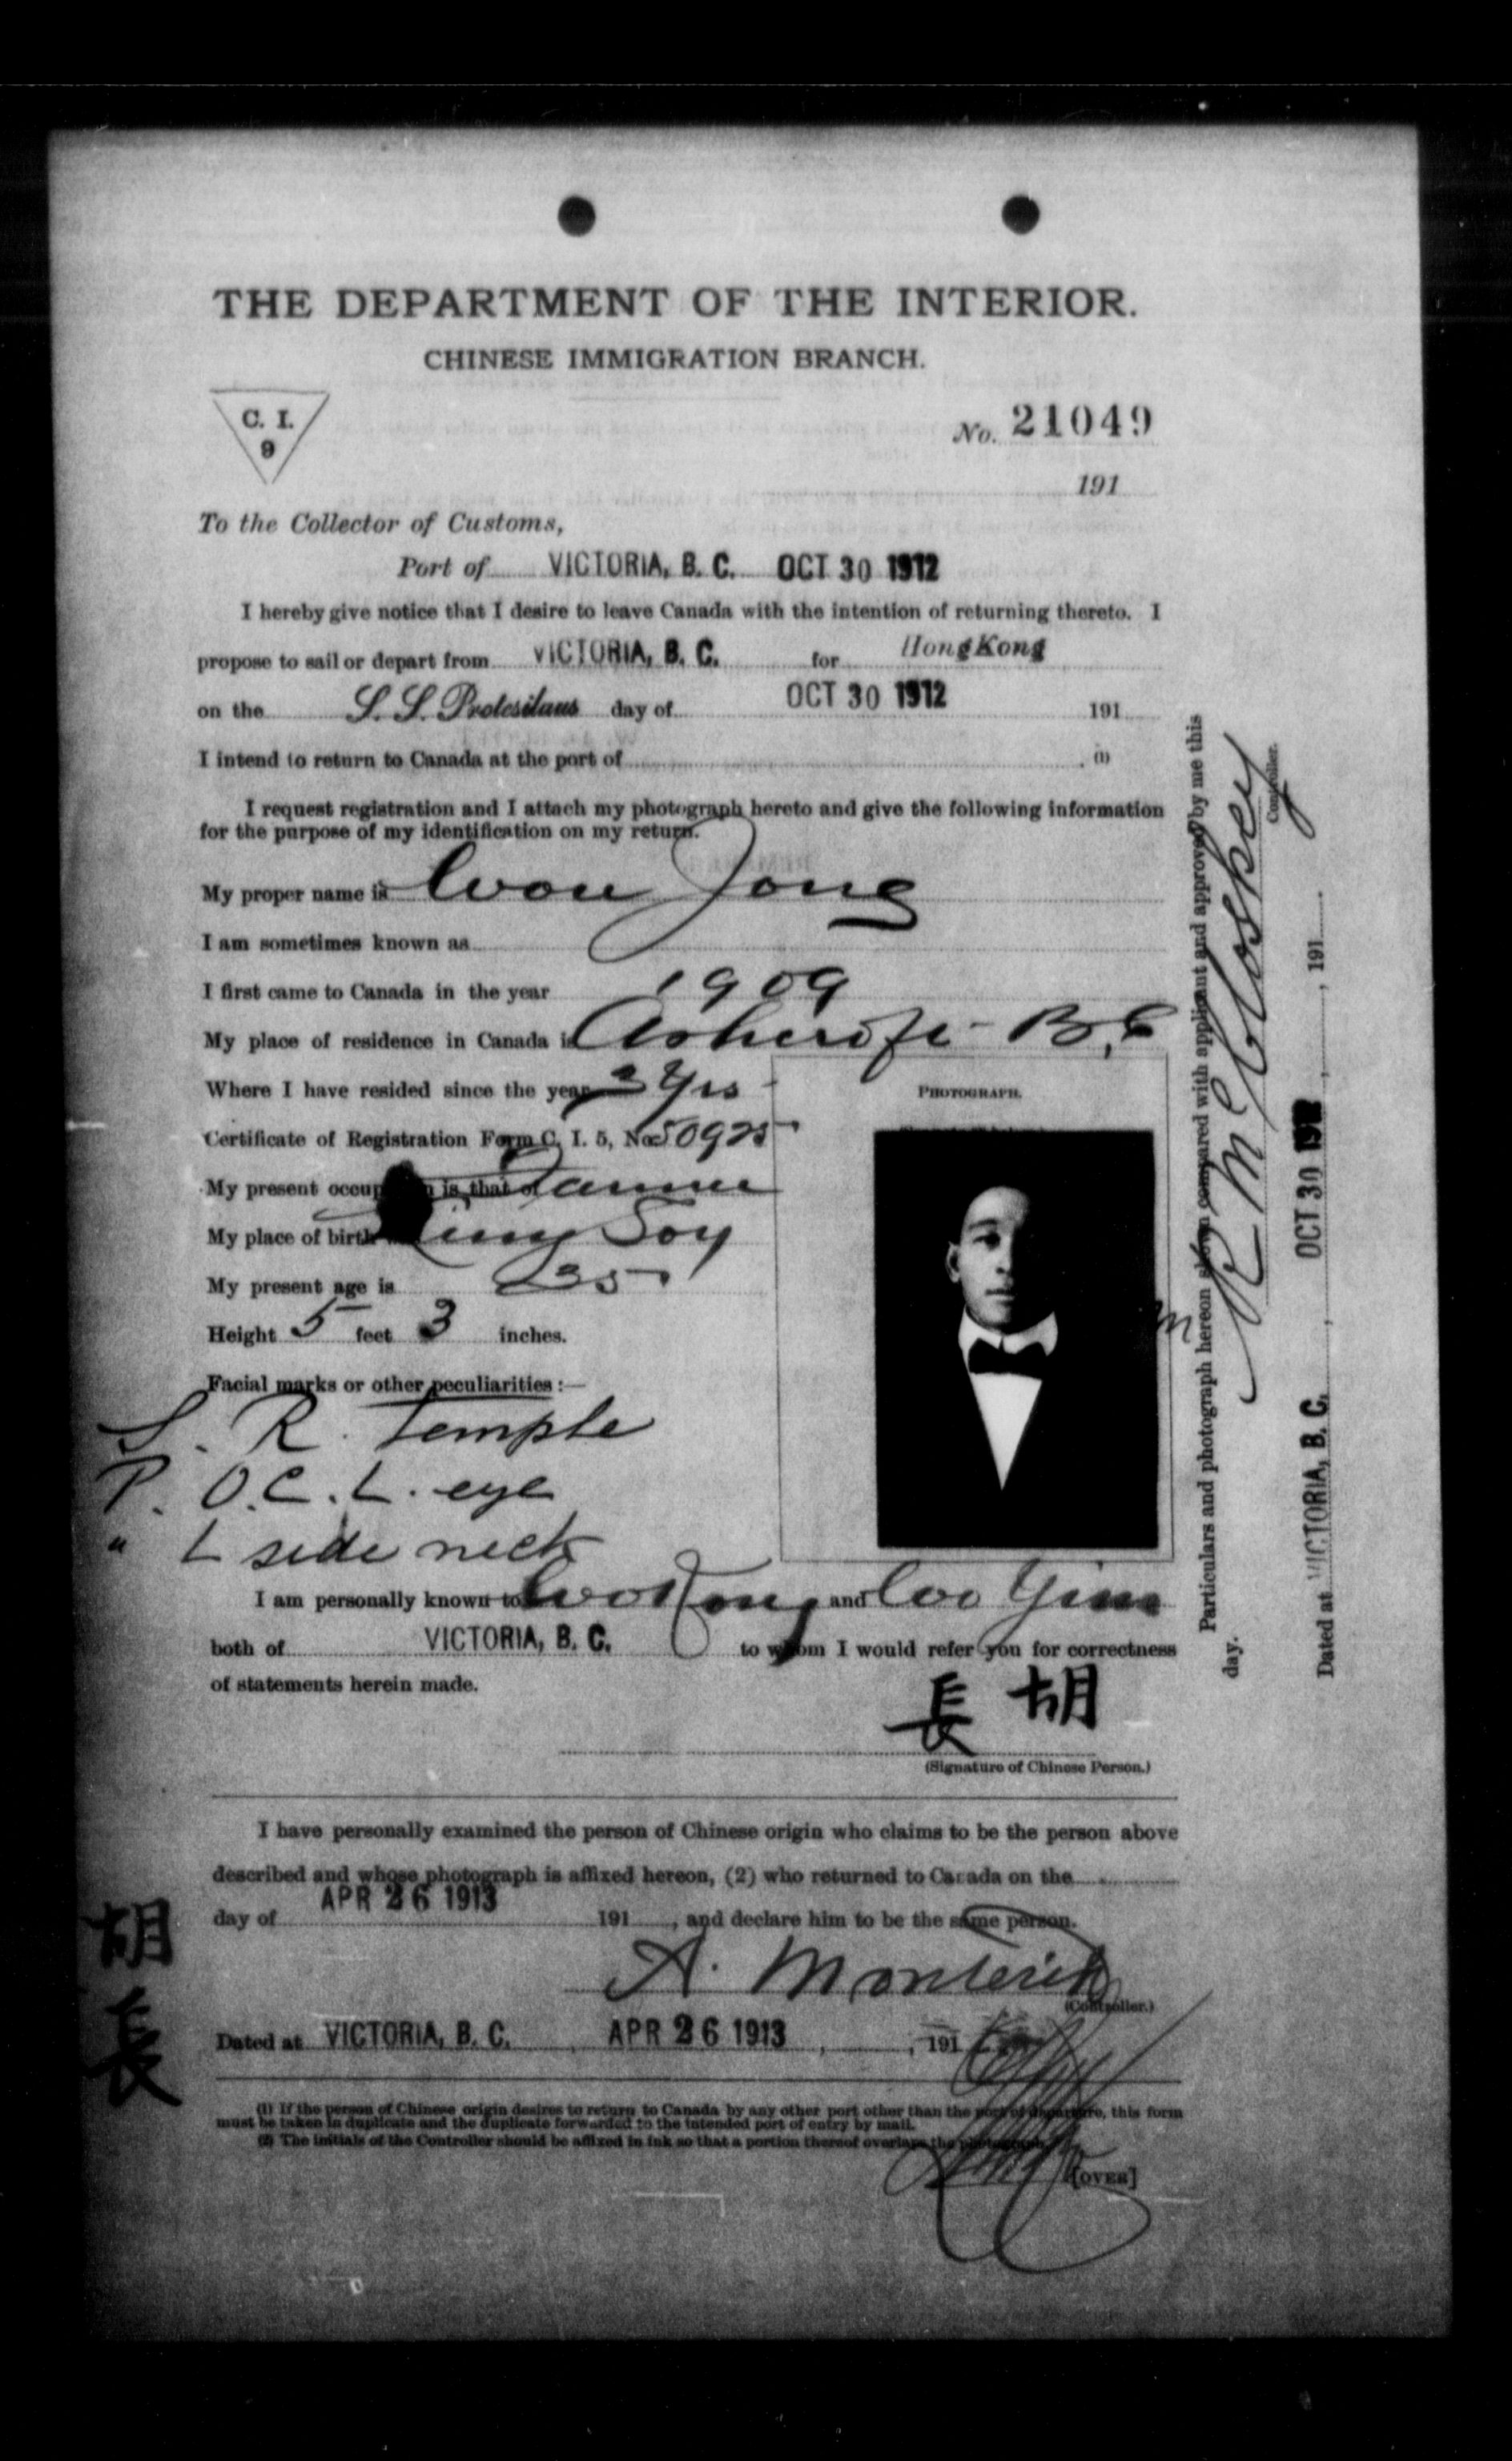 THE DEPARTMENT OF THE INTERIOR.
CHINESE IMMIGRATION BRANCH.
C. I.
9
No. 21049
191
To the Collector of Customs,
Port of VICTORIA, B. C. OCT 30 1912
I hereby give notice that I desire to leave Canada with the intention of returning thereto. I
propose to sail or depart from VICTORIA, B. C. for HongKong
on the S. S. Protesilaus day of OCT 30 1912 191
I intend to return to Canada at the port of . (1)
I request registration and I attach my photograph hereto and give the following information
for the purpose of my identification on my return.
My proper name is Woo Jong
I am sometimes known as
I first came to Canada in the year 1909
My place of residence in Canada is Ashcroft B.C
Where I have resided since the year 3 Yrs
Certificate of Registration Form C. I. 5, No. 50925
My present occupation is that of Farmer
My place of birth Soy
My present age is 35
Height 5 feet 3 inches.
Facial marks or other peculiarities :—
S. R. Temple
P. O.C. L. eye
" L side neck
PHOTOGRAPH.
I am personally known to Woo and Woo Yim
both of VICTORIA, B. C. to whom I would refer you for correctness
of statements herein made.
胡長
(Signature of Chinese Person.)
I have personally examined the person of Chinese origin who claims to be the person above
described and whose photograph is affixed hereon, (2) who returned to Canada on the
day of APR 26 1913 191 , and declare him to be the same person.
A. Monteith
(Controller.)
Dated at VICTORIA, B. C. , APR 26 1913 , , 191
(1) If the person of Chinese origin desires to return to Canada by any other port other than the port of departure, this form
must be taken in duplicate and the duplicate forwarded to the intended port of entry by mail.
(2) The initials of the Controller should be affixed in ink so that a portion thereof overlaps the photograph.
[OVER]
胡長
Particulars and photograph hereon shown compared with applicant and approved by me this
day.
Controller.
Dated at VICTORIA, B. C. , OCT 30 1912 , , 191